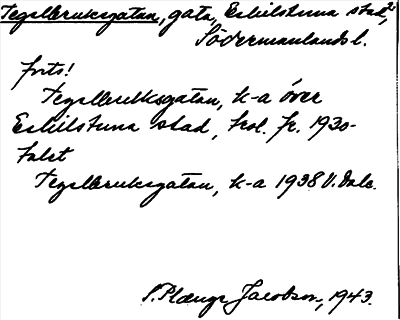 Tegelbruksgatan, gata, Eskilstuna stad, 2
Södermanlands l.
forts!
Tegelbruksgatan, k-a över
Eskilstuna stad, kol. fr. 1930-
talet
Tegelbruksgatan, k-a 1938 V. Dale.
P. Plænge Jacobson, 1943.